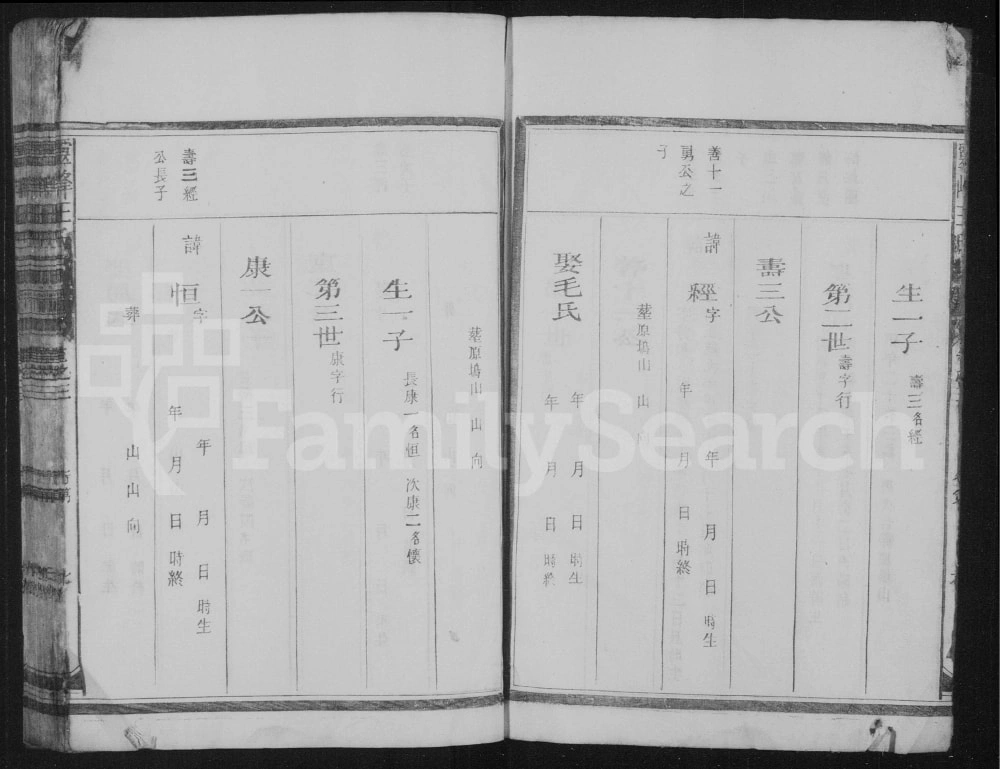 生一子 壽三名經
第二世 壽字行
壽三公
善十一
勇公之
子
諱經字 年 月 日 時生
年 月 日 時終
墓原塢山 山 向
娶毛氏 年 月 日 時生
年 月 日 時終
墓原塢山 山 向
生一子 長康一名恒 次康二名懷
第三世 康字行
康一公
壽三經
公長子
諱恒字 年 月 日 時生
年 月 日 時終
葬 山 山 向
FamilySearch